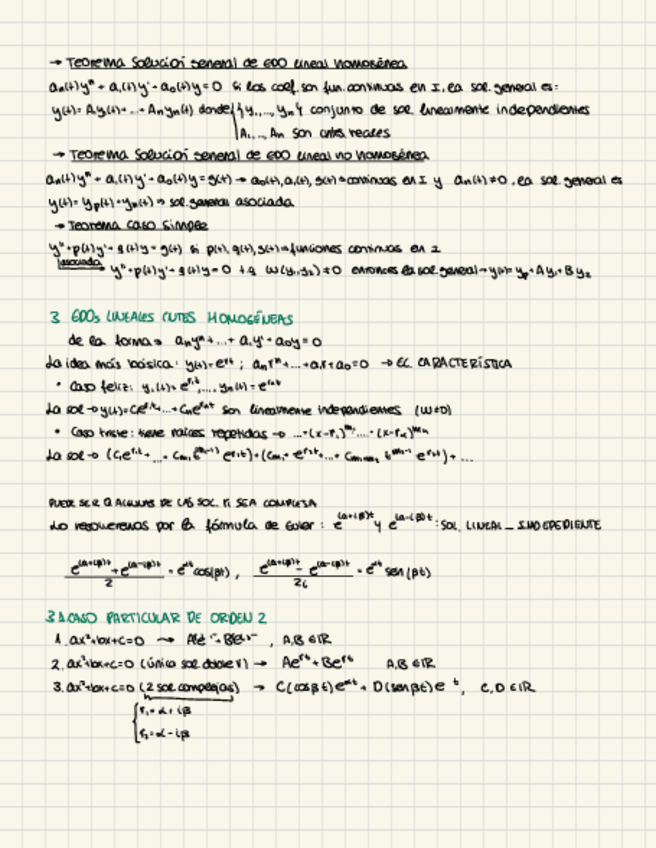 → Teorema Solución general de EDO lineal homogénea
aₙ(t)yⁿ + a₁(t)y' + a₀(t)y = 0 si los coef. son fun. continuas en I, la sol. general es:
y(t) = A₁y₁(t) + ... + Aₙyₙ(t) donde { {y₁, ..., yₙ} conjunto de sol. linealmente independientes
A₁, ..., Aₙ son ctes reales
→ Teorema Solución general de EDO lineal no homogénea
aₙ(t)yⁿ + a₁(t)y' + a₀(t)y = g(t) → a₀(t), a₁(t), g(t) → continuas en I y aₙ(t) ≠ 0, la sol. general es
y(t) = yₚ(t) + yₕ(t) → sol. general asociada
→ Teorema caso simple
y'' + p(t)y' + q(t)y = g(t) si p(t), q(t), g(t) → funciones continuas en I
asociada → y'' + p(t)y' + q(t)y = 0 t.q. W(y₁, y₂) ≠ 0 entonces la sol. general → y(t) = yₚ + Ay₁ + By₂
3 EDOs LINEALES CNTES HOMOGÉNEAS
de la forma → aₙyⁿ + ... + a₁y' + a₀y = 0
La idea más básica: y(t) = eʳᵗ ; aₙrⁿ + ... + a₁r + a₀ = 0 → EC. CARACTERÍSTICA
• Caso feliz: y₁(t) = e^{r₁t}, ..., yₙ(t) = e^{rₙt}
La sol → y(t) = C₁e^{r₁t} + ... + Cₙe^{rₙt} son linealmente independientes (W≠0)
• Caso triste: tiene raíces repetidas → ... + (x-r₁)^{m₁} ... + (x-rₙ)^{mₙ}
La sol → (C₁e^{r₁t} + ... + Cₘ₁ t^{m₁-1} e^{r₁t}) + (Cₘ₁₊ e^{r₂t} + ... + t^{m₂-1} e^{r₂t}) + ...
PUEDE SER Q ALGUNAS DE LAS SOL. rᵢ SEA COMPLEJA
Lo resolveremos por la fórmula de Euler : e^{(α+iβ)t} y e^{(α-iβ)t} : SOL. LINEAL_INDEPEDIENTE
(e^{(α+iβ)t} + e^{(α-iβ)t})/2 = e^{αt} cos(βt) , (e^{(α+iβ)t} - e^{(α-iβ)t})/2i = e^{αt} sen(βt)
3.1. CASO PARTICULAR DE ORDEN 2
1. ax²+bx+c=0 → , A,B ∈ ℝ
2. ax²+bx+c=0 (única sol. doble r) → Aeʳᵗ + Beʳᵗ A,B ∈ ℝ
3. ax²+bx+c=0 (2 sol. complejas) → C(cosβt)e^{αt} + D(senβt)e ᵗ, C,D ∈ ℝ
{ r₁ = α + iβ
r₂ = α - iβ